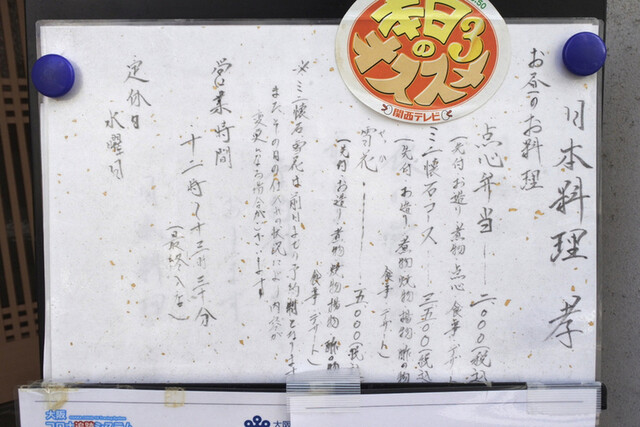 日本料理 孝
お昼のお料理
点心弁当 ------ 二〇〇〇(税込)
(先付 お造り 煮物 点心 食事 デザート)
ミニ懐石コース --- 三五〇〇(税込)
(先付 お造り 煮物 焼物 揚物 酢の物
食事 デザート)
雪花 ------ 五〇〇〇(税込)
(先付 お造り 煮物 焼物 揚物 酢の物
食事 デザート)
※ミニ懐石、雪花は前日までの予約制となります
またその日の仕入れの状況により内容が
変更になる場合がございます
営業時間
十二時〜十三時三十分
(最終入店)
定休日
水曜日
本日の3
オススメ
関西テレビ
大阪
コロナ追跡システム
大阪